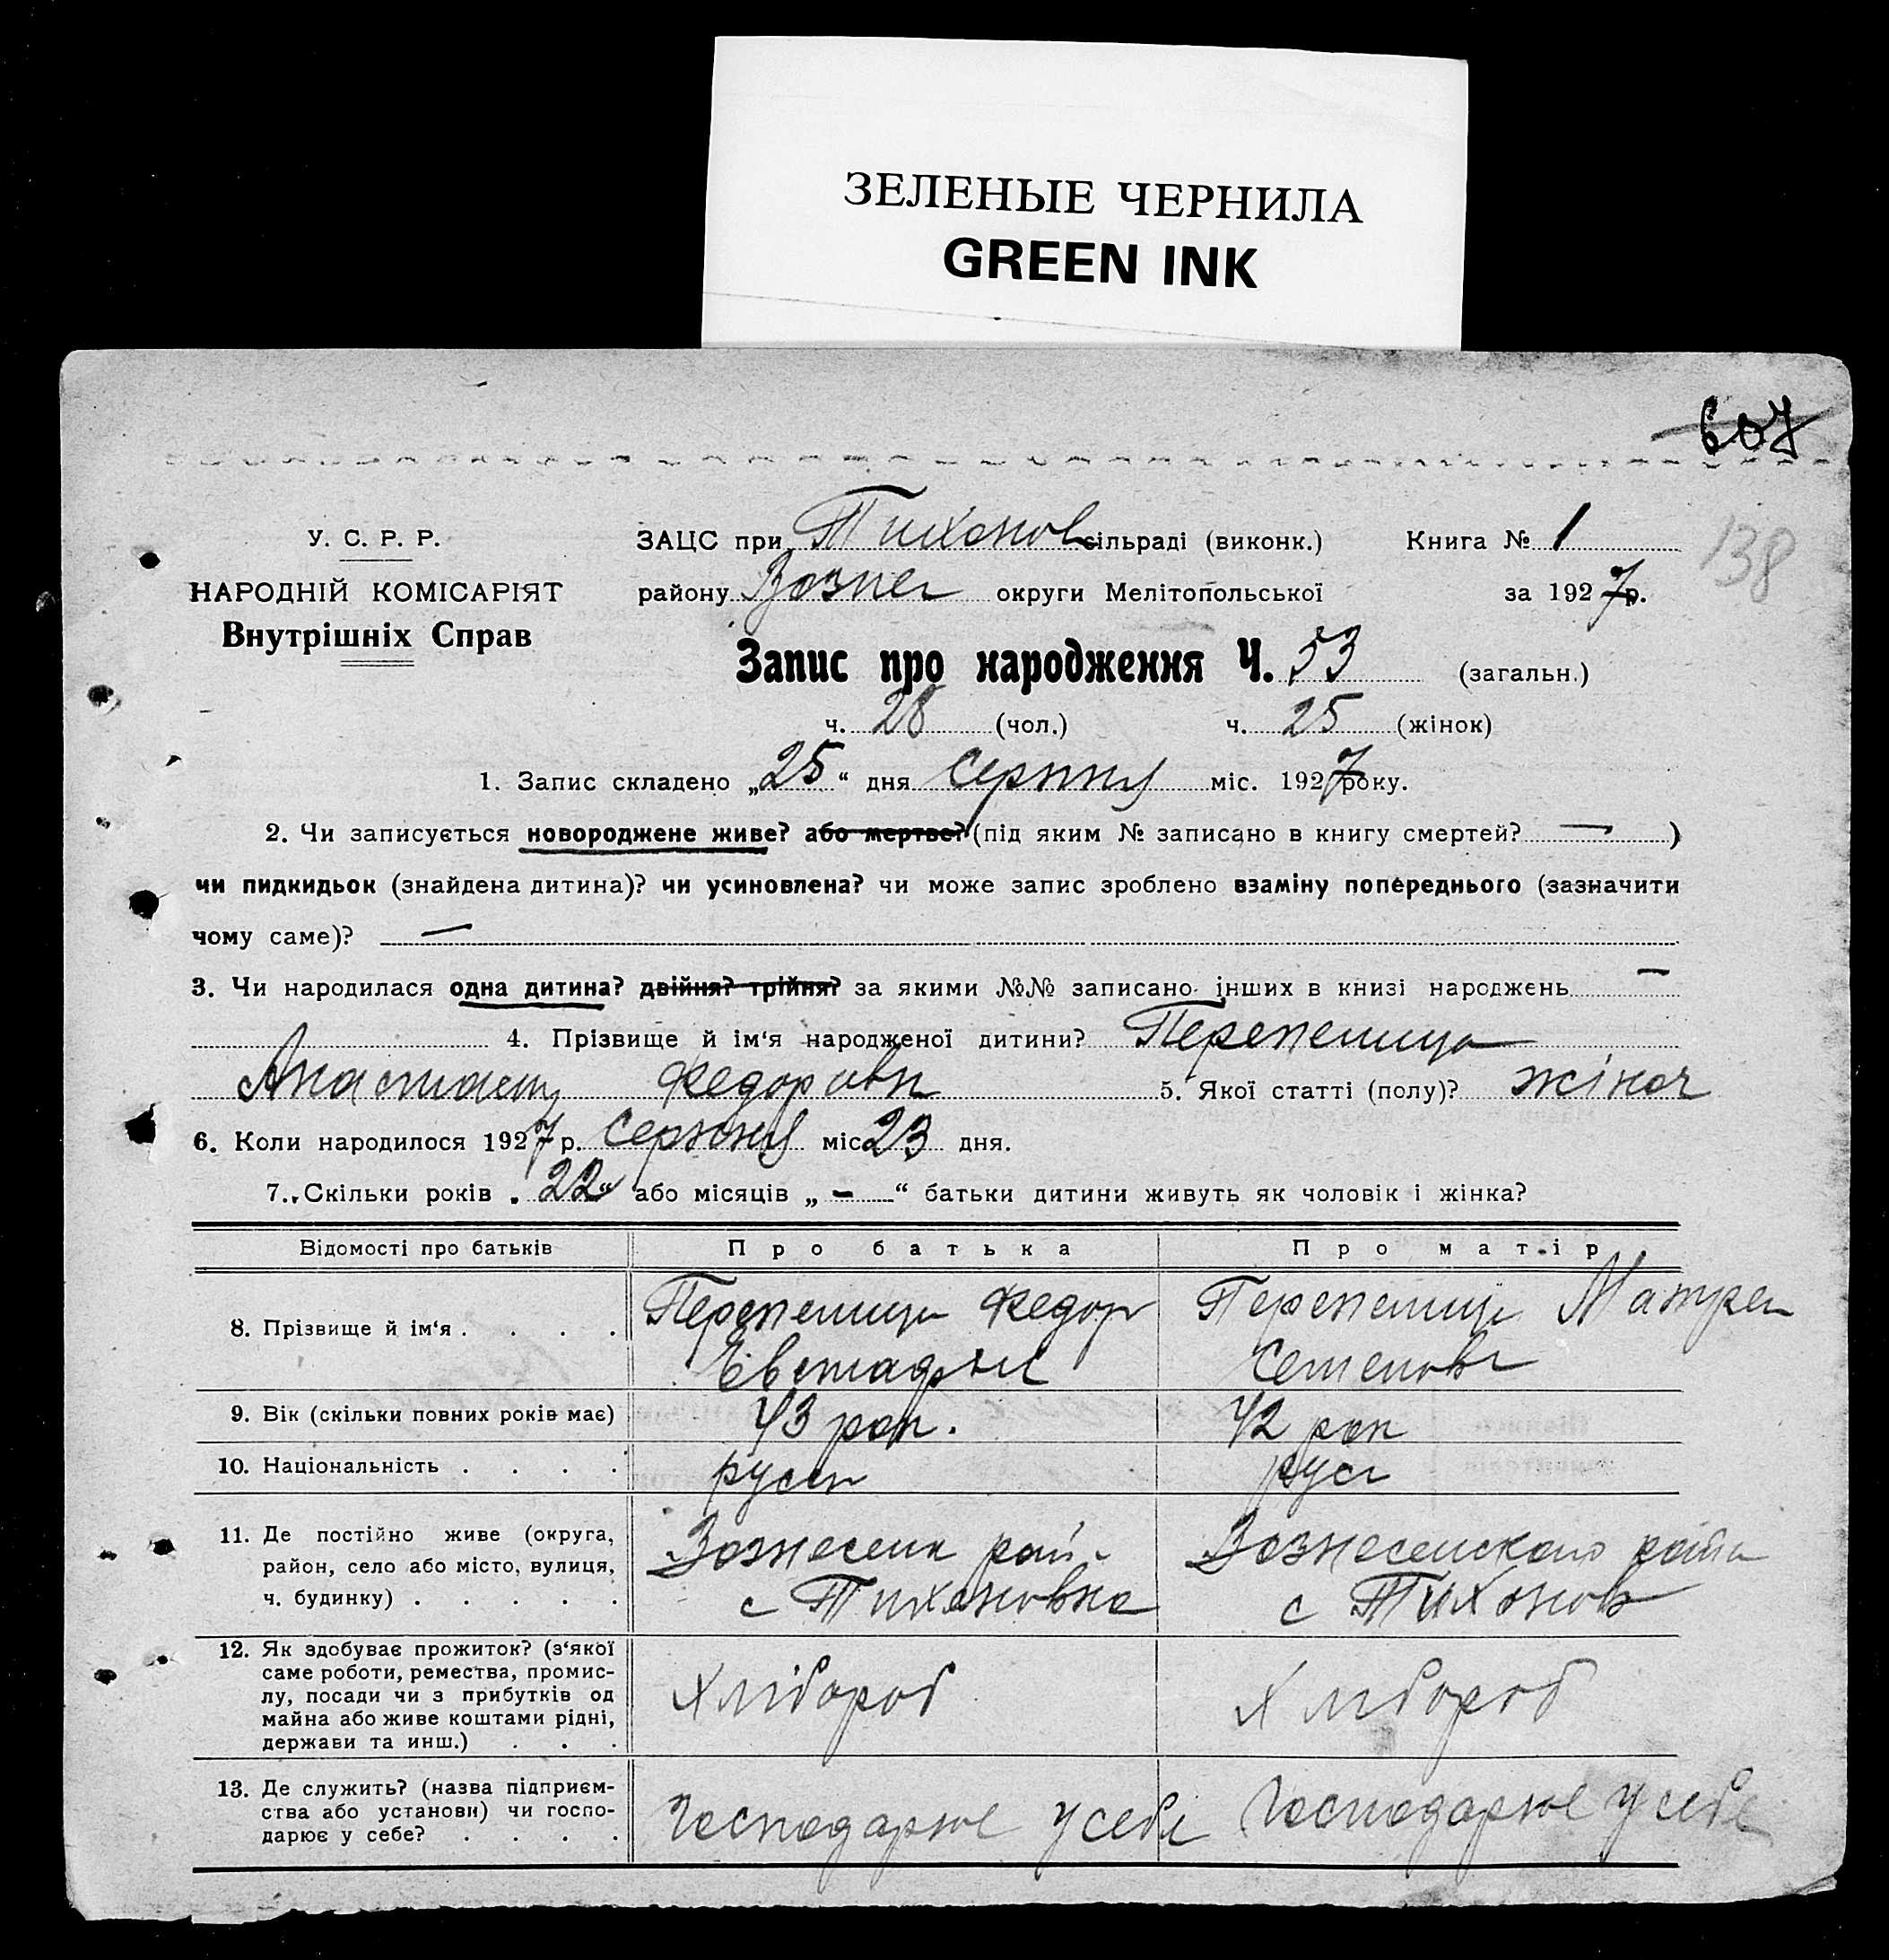 ЗЕЛЕНЫЕ ЧЕРНИЛА
GREEN INK
607
138
У. С. Р. Р.
НАРОДНІЙ КОМІСАРІЯТ
Внутрішніх Справ
ЗАЦС при Тихонов сільраді (виконк.) Книга № 1
району Вознес округи Мелітопольської за 1927 р.
Запис про народження Ч. 53 (загальн.)
ч. 28 (чол.) ч. 25 (жінок)
1. Запис складено „25“ дня серпня міс. 1927 року.
2. Чи записується новороджене живе? або мертве? (під яким № записано в книгу смертей? — )
чи пидкидьок (знайдена дитина)? чи усиновлена? чи може запис зроблено взаміну попереднього (зазначити
чому саме)? —
3. Чи народилася одна дитина? двійня? трійня? за якими №№ записано інших в книзі народжень —
4. Прізвище й ім‘я народженої дитини? Перепелица
Анастасія Федоровн 5. Якої статті (полу)? жіноч
6. Коли народилося 1927 р. серпня міс 23 дня.
7. Скільки років „22“ або місяців „ - “ батьки дитини живуть як чоловік і жінка?
Відомості про батьків Про батька Про матір
8. Прізвище й ім‘я . . . . Перепелица Федор Перепелица Матрен
Евстафьев Семенов
9. Вік (скільки повних років має) 43 рок. 42 рок
10. Національність . . . . руск руск
11. Де постійно живе (округа, район, село або місто, вулиця, ч. будинку) . . . . . Вознесенк рай- Вознесенского райн
с Тихоновка с Тихонов
12. Як здобуває прожиток? (з‘якої
саме роботи, ремества, промис-
лу, посади чи з прибутків од
майна або живе коштами рідні,
держави та инш.) . . . Хлібороб Хлібороб
13. Де служить? (назва підприєм-
ства або установи) чи госпо-
дарює у себе? . . . . Господарює у себе Господарює у себе